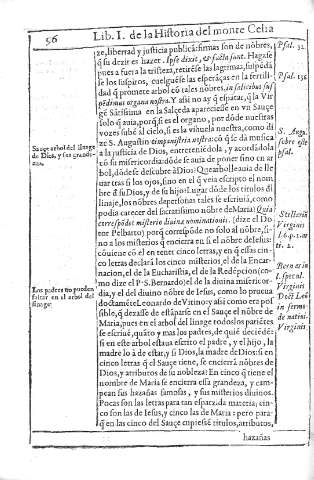 56
Lib. I. de la Historia del monte Celia
ze, libertad y justicia publica: firmas son de nõbres,
q̃ su dezir es hazer. Ipse dixit, & facta sunt. Hagase
pues a fuera la tristeza, retirẽse las lagrimas, suspẽdã
se los suspiros, cuelguẽse las esperãças en la fertili-
dad q̃ promete arbol cõ tales nõbres, in salicibus sus
pẽdimus organa nostra. Y assi no ay q̃ espãtar, q̃ la Vir
gẽ Sãtissima en la Salçeda apareciesse en vn Sauçe
solo q̃ auia, porq̃ si es el organo, por dõde nuestras
vozes subẽ al cielo, si es la vihuela nuestra, como di
ze S. Augustin timpanistria nostra: cõ q̃ se dà musica
a la justicia de Dios, entreteniẽdola, y acordãdola
cõ su misericordia: dõde se auia de poner sino en ar
bol, dõde se descubre à Dios: Que arbol auia de lle
uar tras si los ojos, sino en el q̃ veia escripto el nom
bre d̃ su Dios, y de su hijo: Lugar dõde los titulos di
linaje, los nõbres de personas tales se escriuiã, como
podia carecer del sacratissimo nõbre de Maria: Quia
correspõdet misterio diuina nominationis. (dize el Do-
ctor Pelbarto) porq̃ corresponde no solo al nõbre, si-
no a los misterios q̃ encierra en si el nõbre de Iesus:
cõuiene cõ el en tener cinco letras, y en q̃ essas cin-
co letras declarã los cinco misterios, el de la Encar-
nacion, el de la Eucharistia, el de la Redẽpcion (co-
mo dize el P. S. Bernardo) el de la diuina misericor-
dia, y el del diuino nõbre de Iesus, como lo prueua
doctamẽte Leonardo de Vitino y assi como era pos
sible, q̃ dexasse de estãparse en el Sauçe el nõbre de
Maria, pues en el arbol del linage todos los pariẽtes
se escriuẽ, quãto y mas los padres, de quiẽ deciẽdẽ:
si en este arbol estaua escrito el padre, y el hijo, la
madre lo à de estar, y si Dios, la madre de Dios: si en
cinco letras q̃l Sauçe tiene, se encierrã nõbres de
Dios, y atributos de su nobleza: En cinco q̃ tiene el
nombre de Maria se encierra essa grandeza, y cam-
pean sus hazañas famosas, y sus misterios diuinos.
Pocas son las letras para tan espaziosa materia; cin-
co son las de Iesus, y cinco las de Maria: pero para
q̃ en las cinco del Sauçe cupiessẽ titulos, atributos,
hazañas
Sauçe arbol del linage
de Dios, y sus grande-
zas.
Los padres no pueden
faltar en el arbol del
linage:
Psal. 32.
Psal. 136
S. Aug.
sobre este
psal.
Stellariũ
Virginis
Bern. ser in
Virginis
in sermo
de natiui.
Virginis.